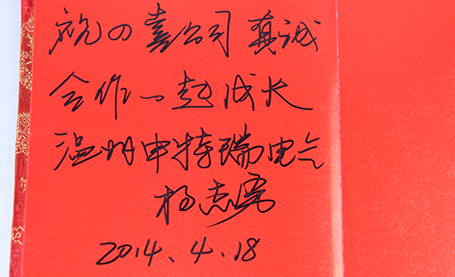 祝口喜公司真诚
合作一起成长
温州申特瑞电气
杨志
2014.4.18